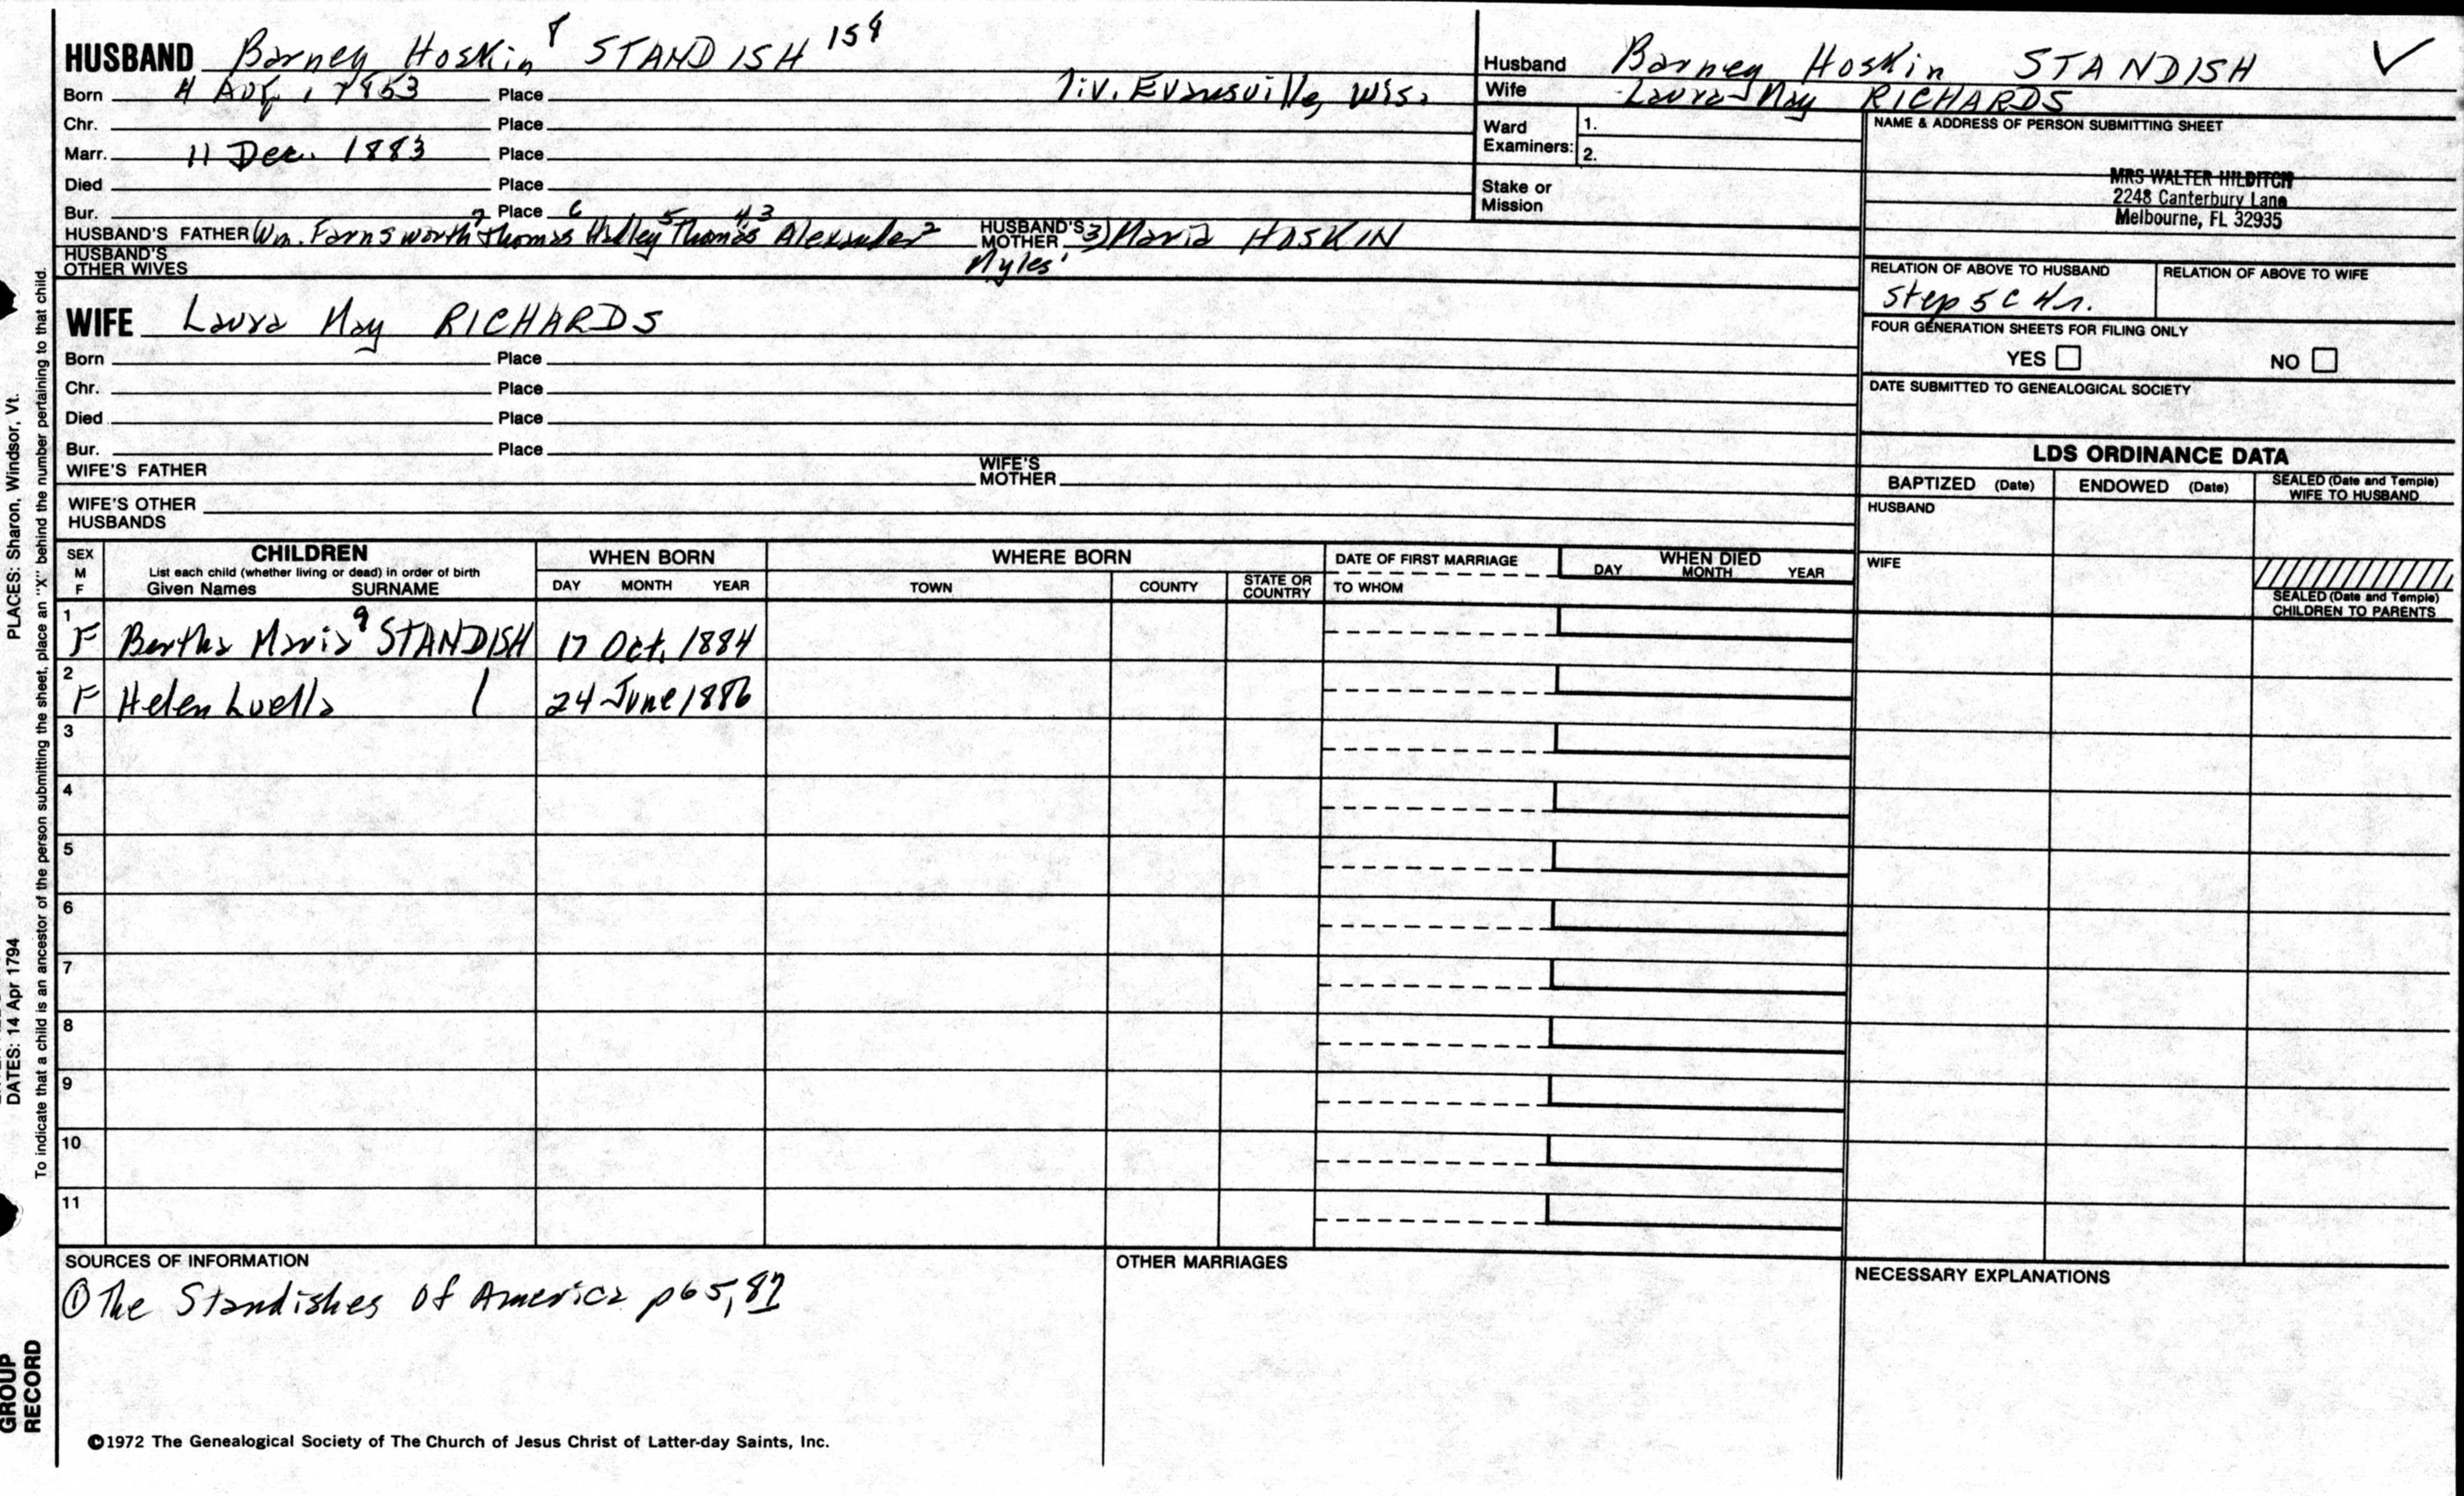 HUSBAND Barney Hoskin 8 STANDISH 158
Born 4 Aug. 1853 Place liv. Evansville, Wis.
Chr. Place
Marr. 11 Dec. 1883 Place
Died Place
Bur. Place
HUSBAND'S FATHER Wm. Farnsworth 7 Thomas 6 Hadley 5 Thomas 4 3 Alexander 2 Myles 1 HUSBAND'S MOTHER 3) Maria HOSKIN
HUSBAND'S OTHER WIVES
WIFE Laura May RICHARDS
Born Place
Chr. Place
Died Place
Bur. Place
WIFE'S FATHER WIFE'S MOTHER
WIFE'S OTHER HUSBANDS
Husband Barney Hoskin STANDISH ✓
Wife Laura May RICHARDS
Ward Examiners: 1.
2.
Stake or Mission
NAME & ADDRESS OF PERSON SUBMITTING SHEET
MRS WALTER HILDITCH
2248 Canterbury Lane
Melbourne, FL 32935
RELATION OF ABOVE TO HUSBAND RELATION OF ABOVE TO WIFE
Step 5 C 4r.
FOUR GENERATION SHEETS FOR FILING ONLY
YES NO
DATE SUBMITTED TO GENEALOGICAL SOCIETY
LDS ORDINANCE DATA
BAPTIZED (Date) ENDOWED (Date) SEALED (Date and Temple) WIFE TO HUSBAND
HUSBAND
WIFE
SEALED (Date and Temple) CHILDREN TO PARENTS
SEX M F CHILDREN List each child (whether living or dead) in order of birth Given Names SURNAME
WHEN BORN DAY MONTH YEAR
WHERE BORN TOWN COUNTY STATE OR COUNTRY
DATE OF FIRST MARRIAGE TO WHOM
WHEN DIED DAY MONTH YEAR
1 F Bertha Maria 9 STANDISH 17 Oct. 1884
2 F Helen Luella 24 June 1886
3
4
5
6
7
8
9
10
11
SOURCES OF INFORMATION
① The Standishes of America p65, 87
OTHER MARRIAGES
NECESSARY EXPLANATIONS
©1972 The Genealogical Society of The Church of Jesus Christ of Latter-day Saints, Inc.
PLACES: Sharon, Windsor, Vt.
DATES: 14 Apr 1794
To indicate that a child is an ancestor of the person submitting the sheet, place an "X" behind the number pertaining to that child.
GROUP
RECORD